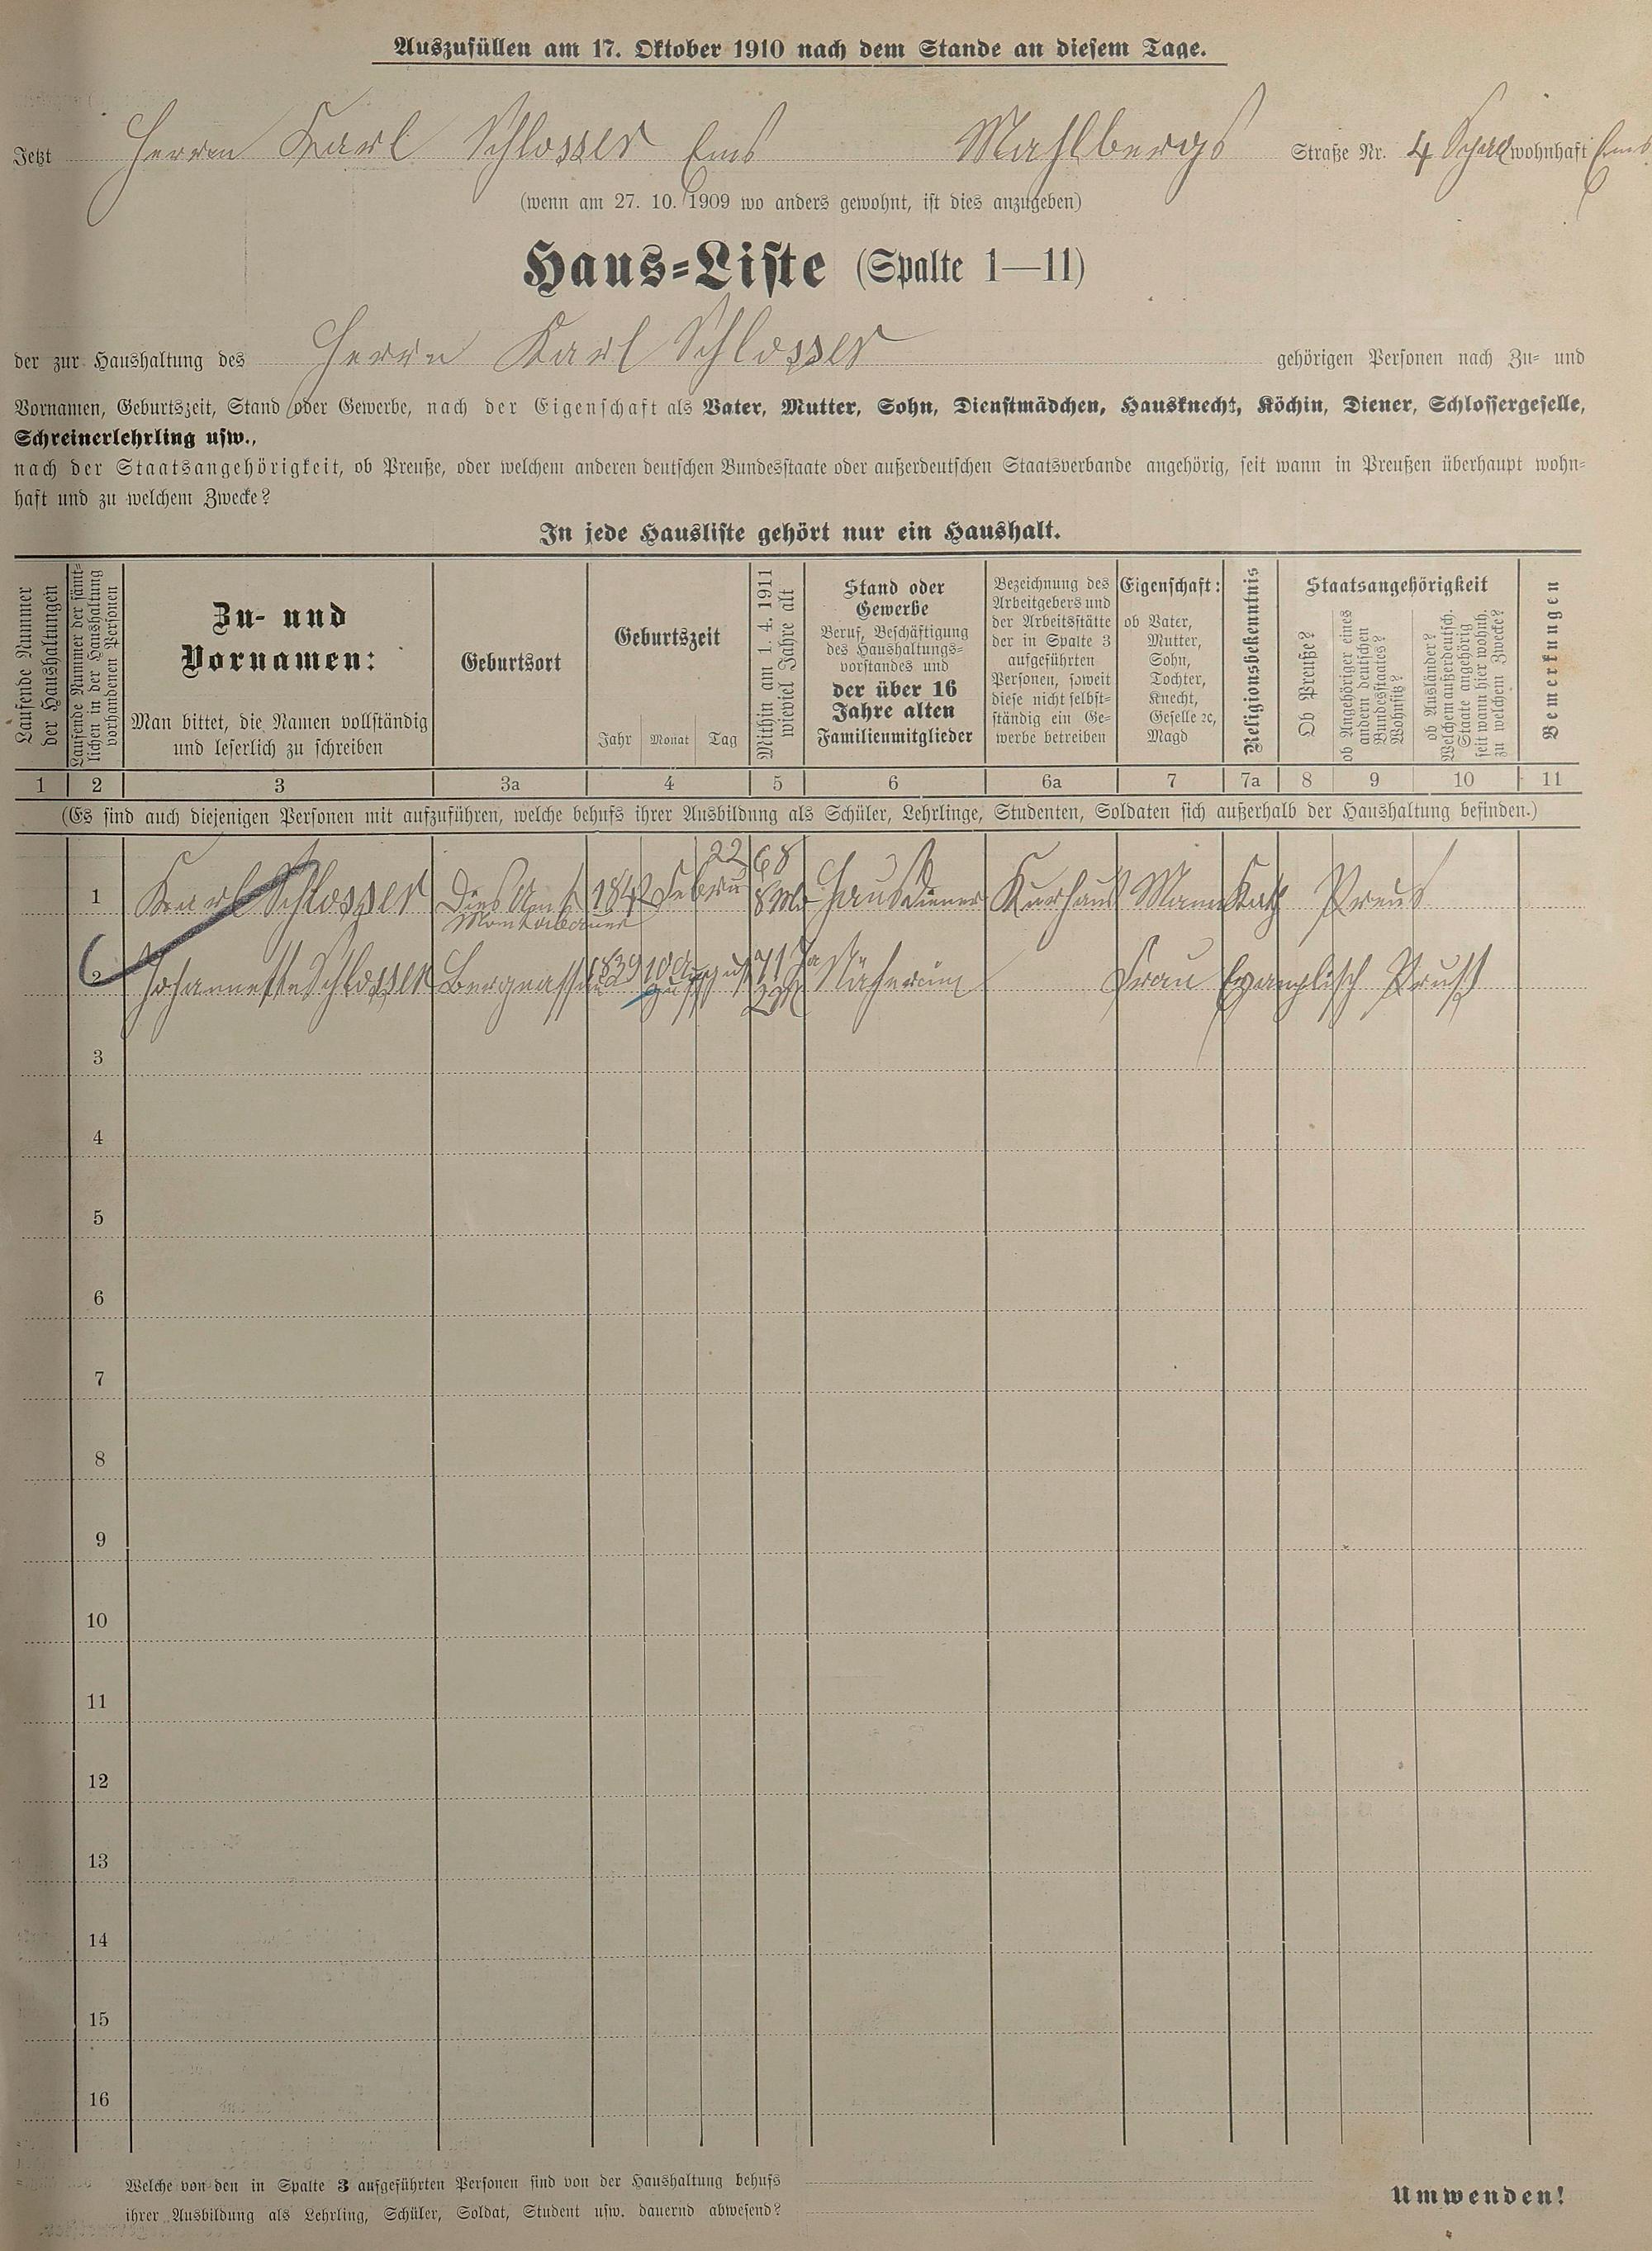 Auszufüllen am 17. Oktober 1910 nach dem Stande an diesem Tage.
Jetzt Herrn Karl Schlosser Ems Mahlbergs Straße Nr. 4 wohnhaft Ems
(wenn am 27. 10. 1909 wo anders gewohnt, ist dies anzugeben)
Haus-Liste (Spalte 1—11)
der zur Haushaltung des Herrn Karl Schlosser gehörigen Personen nach Zu- und
Vornamen, Geburtszeit, Stand oder Gewerbe, nach der Eigenschaft als Vater, Mutter, Sohn, Dienstmädchen, Hausknecht, Köchin, Diener, Schlossergeselle,
Schreinerlehrling usw.,
nach der Staatsangehörigkeit, ob Preuße, oder welchem anderen deutschen Bundesstaate oder außerdeutschen Staatsverbande angehörig, seit wann in Preußen überhaupt wohn-
haft und zu welchem Zwecke?
In jede Hausliste gehört nur ein Haushalt.
Laufende Nummer
der Haushaltungen
Laufende Nummer der sämt-
lichen in der Haushaltung
vorhandenen Personen
Zu- und
Vornamen:
Man bittet, die Namen vollständig
und leserlich zu schreiben
Geburtsort
Geburtszeit
Jahr Monat Tag
Mithin am 1. 4. 1911
wieviel Jahre alt
Stand oder
Gewerbe
Beruf, Beschäftigung
des Haushaltungs-
vorstandes und
der über 16
Jahre alten
Familienmitglieder
Bezeichnung des
Arbeitgebers und
der Arbeitsstätte
der in Spalte 3
aufgeführten
Personen, soweit
diese nicht selbst-
ständig ein Ge-
werbe betreiben
Eigenschaft:
ob Vater,
Mutter,
Sohn,
Tochter,
Knecht,
Geselle ꝛc,
Magd
Religionsbekenntnis
Staatsangehörigkeit
Ob Preuße?
ob Angehöriger eines
andern deutschen
Bundesstaates?
Wohnsitz?
ob Ausländer?
Welchem außerdeutsch.
Staate angehörig
seit wann hier wohnh.
zu welchem Zwecke?
Bemerkungen
1 2 3 3a 4 5 6 6a 7 7a 8 9 10 11
(Es sind auch diejenigen Personen mit aufzuführen, welche behufs ihrer Ausbildung als Schüler, Lehrlinge, Studenten, Soldaten sich außerhalb der Haushaltung befinden.)
1 Karl Schlosser 1842 Febru 22 68 Hausdiener Kurhaus Mann Kath Preus
2 Johannette Schlosser 1839 10 August 71 Ja Näherinn Frau Evanglisch
3
4
5
6
7
8
9
10
11
12
13
14
15
16
Welche von den in Spalte 3 aufgeführten Personen sind von der Haushaltung behufs
ihrer Ausbildung als Lehrling, Schüler, Soldat, Student usw. dauernd abwesend?
Umwenden!